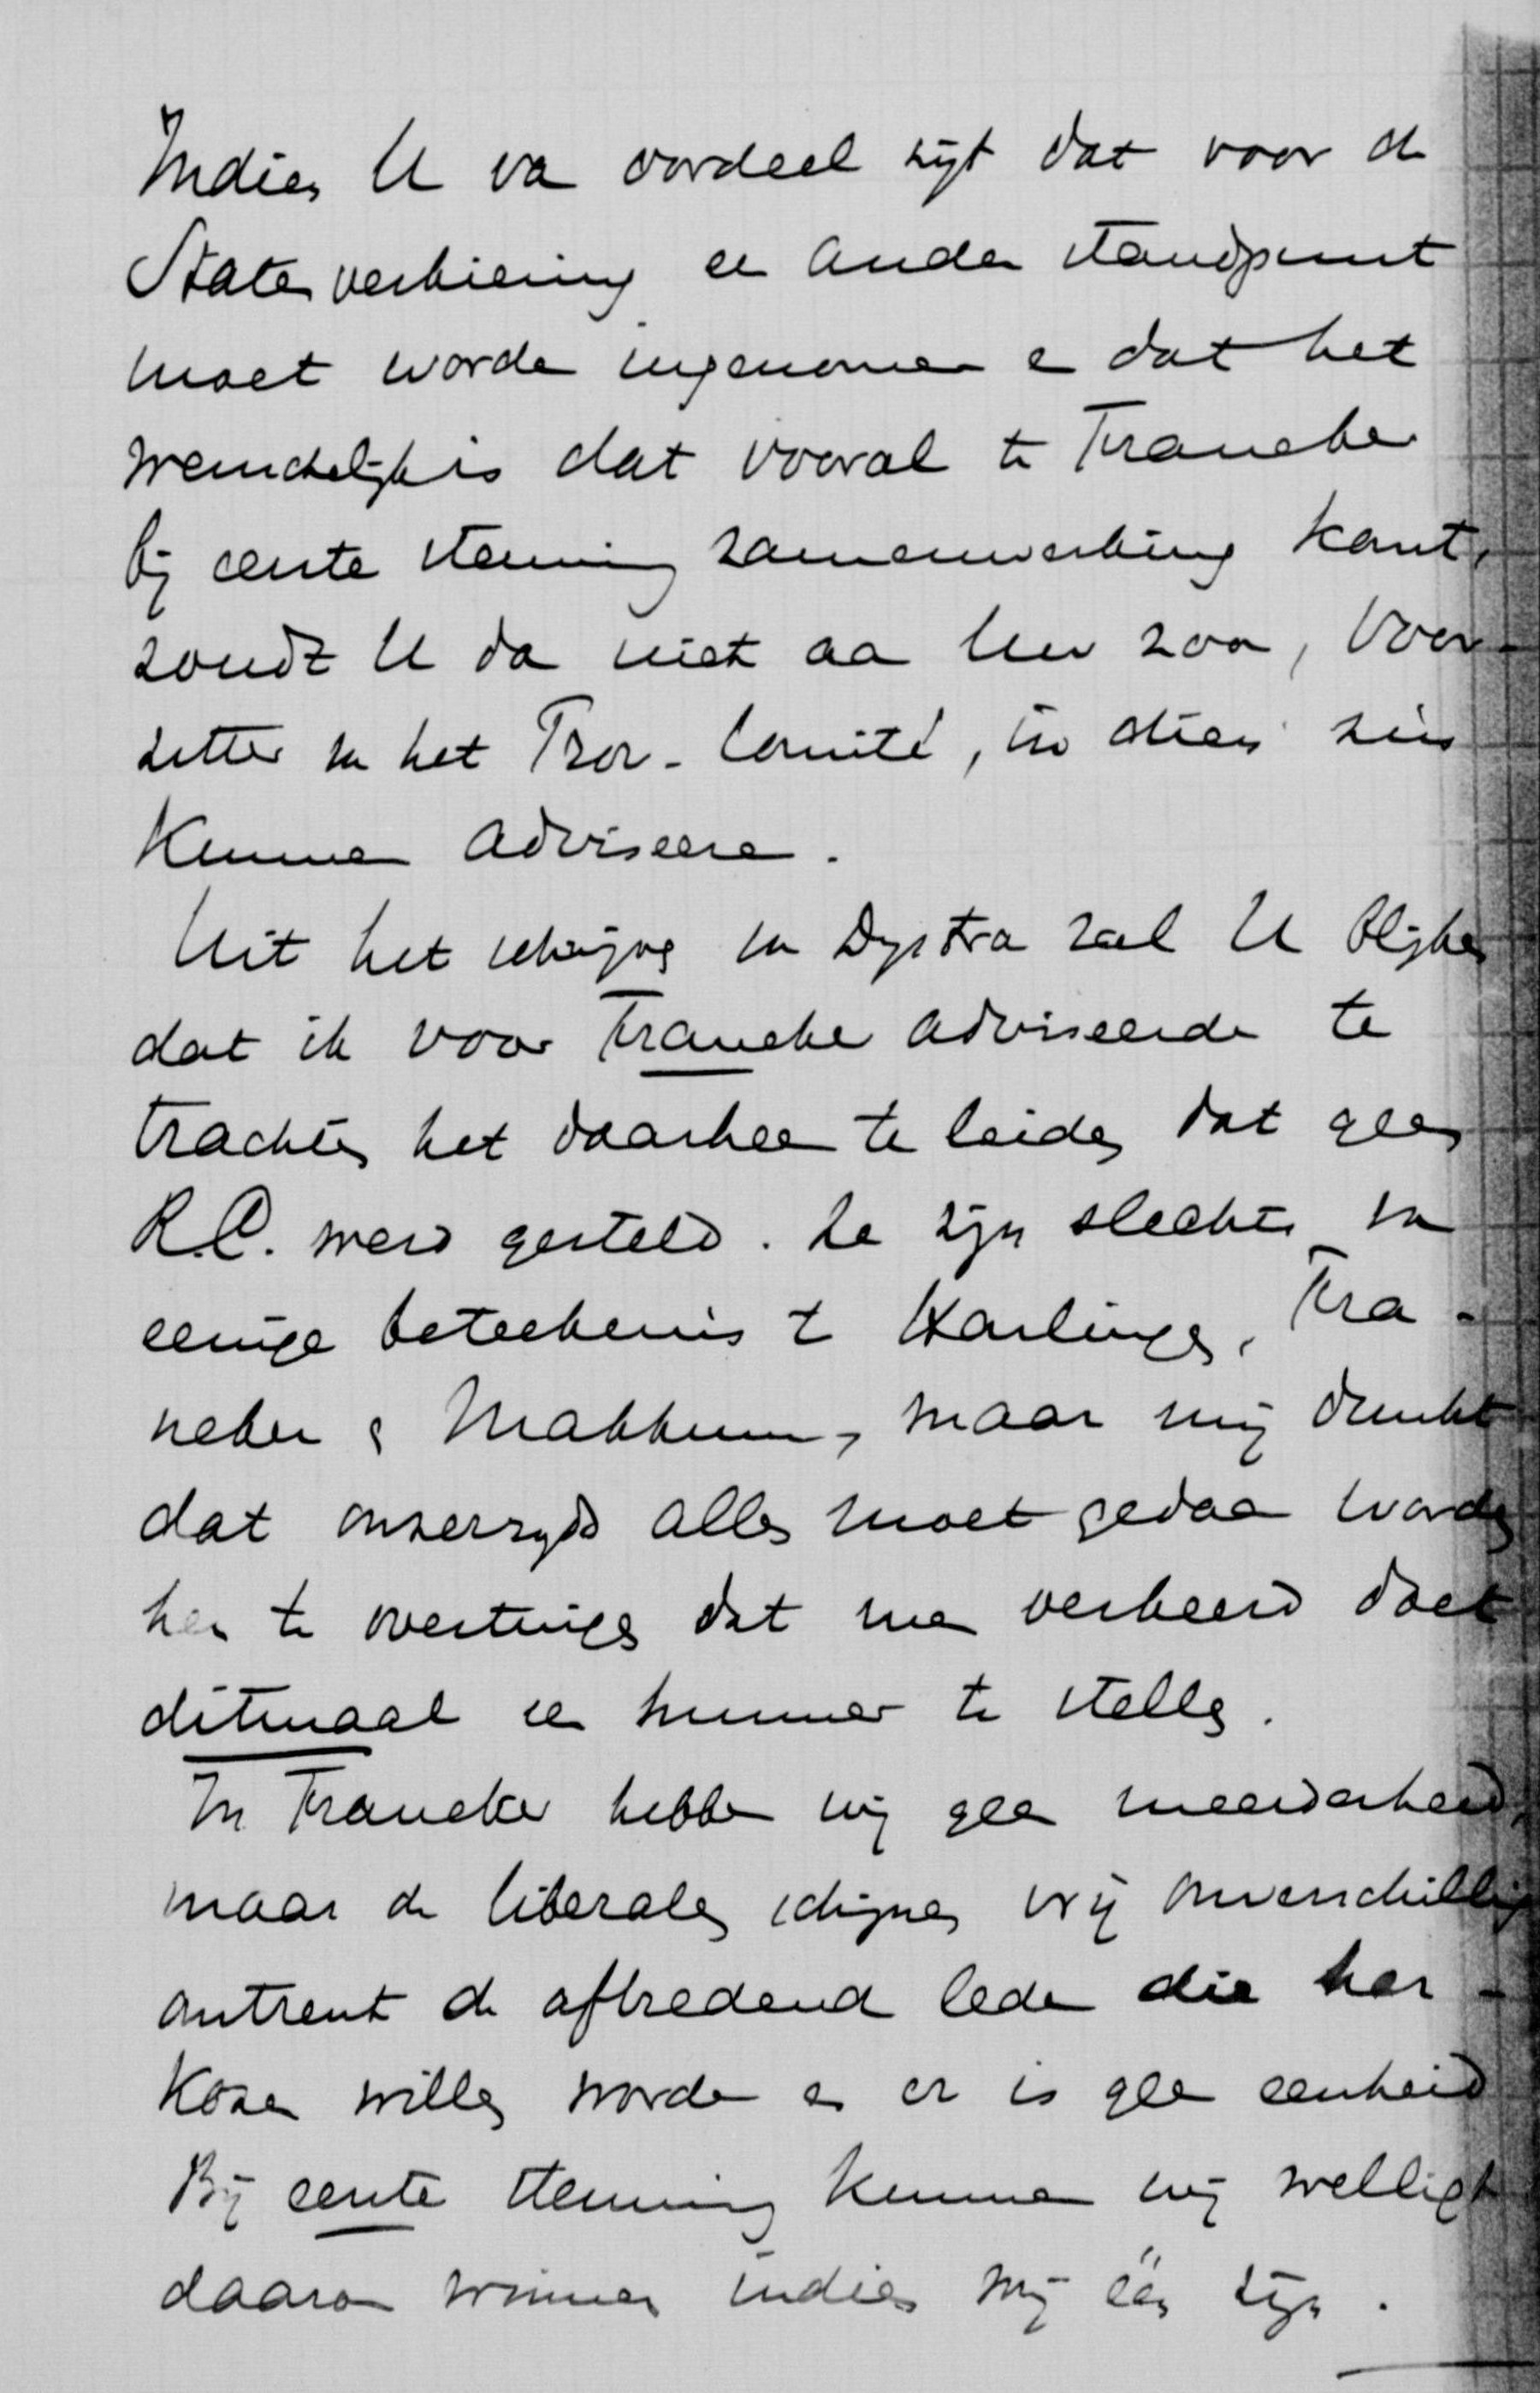 Indien U van oordeel zijt dat voor de
Statenverkiezing een ander standpunt
moet worden ingenomen en dat het
wenschelijk is dat vooral te Franeker
bij eerste stemming samenwerking komt,
zoudt U dan niet aan Uw zoon, Voor-
zitter van het Prov. Comité, in dien zin
kunnen adviseeren.
Uit het schrijven van Dijkstra zal U blijken
dat ik voor Franeker adviseerde te
trachten het daarheen te leiden dat geen
R.C. werd gesteld. Ze zijn slechts van
eenige beteekenis te Harlingen, Fra-
neker en Makkum, maar mij dunkt
dat onzerzijds alles moet gedaan worden
hen te overtuigen dat men verkeerd doet
ditmaal een hunner te stellen.
In Franeker hebben wij geen meerderheid,
maar de liberalen schijnen vrij onverschillig
omtrent de aftredende leden die her-
kozen willen worden en er is geen eenheid
Bij eerste stemming kunnen wij wellicht
daarom winnen indien wij één zijn.